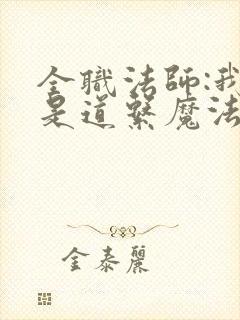 全職法師:我
是道繫魔法
金泰麗